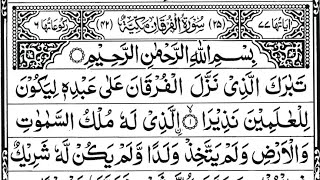 اٰیَاتُهَا ۷۷ (۲۵) سُوْرَةُ الْفُرْقَانِ مَكِّيَّةٌ (۴۲) رُكُوْعَاتُهَا ۶
بِسْمِ اللهِ الرَّحْمٰنِ الرَّحِيْمِ
تَبٰرَكَ الَّذِيْ نَزَّلَ الْفُرْقَانَ عَلٰى عَبْدِهٖ لِيَكُوْنَ
لِلْعٰلَمِيْنَ نَذِيْرًا ۙ الَّذِيْ لَهٗ مُلْكُ السَّمٰوٰتِ
وَالْاَرْضِ وَلَمْ يَتَّخِذْ وَلَدًا وَّلَمْ يَكُنْ لَّهٗ شَرِيْكٌ